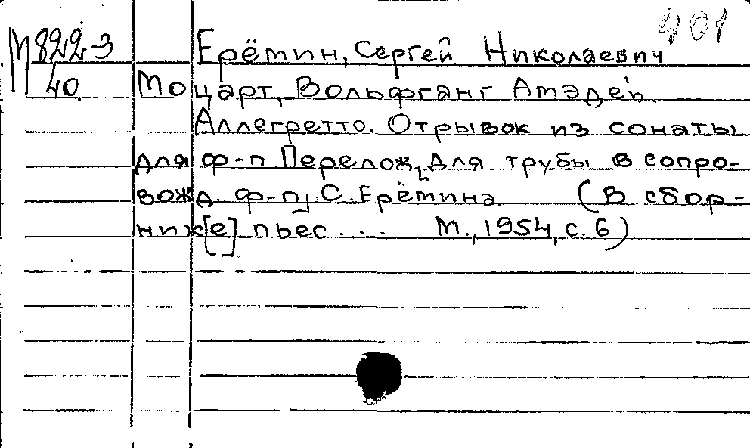 401
М 822-3
40
Ерёмин, Сергей Николаевич
Моцарт, Вольфганг Амадей
Аллегретто. Отрывок из сонаты
для ф-п Перелож. для трубы в сопро-
вожд ф-п С. Ерёмина (В сбор-
ник[е] пьес ... М., 1954, с. 6)